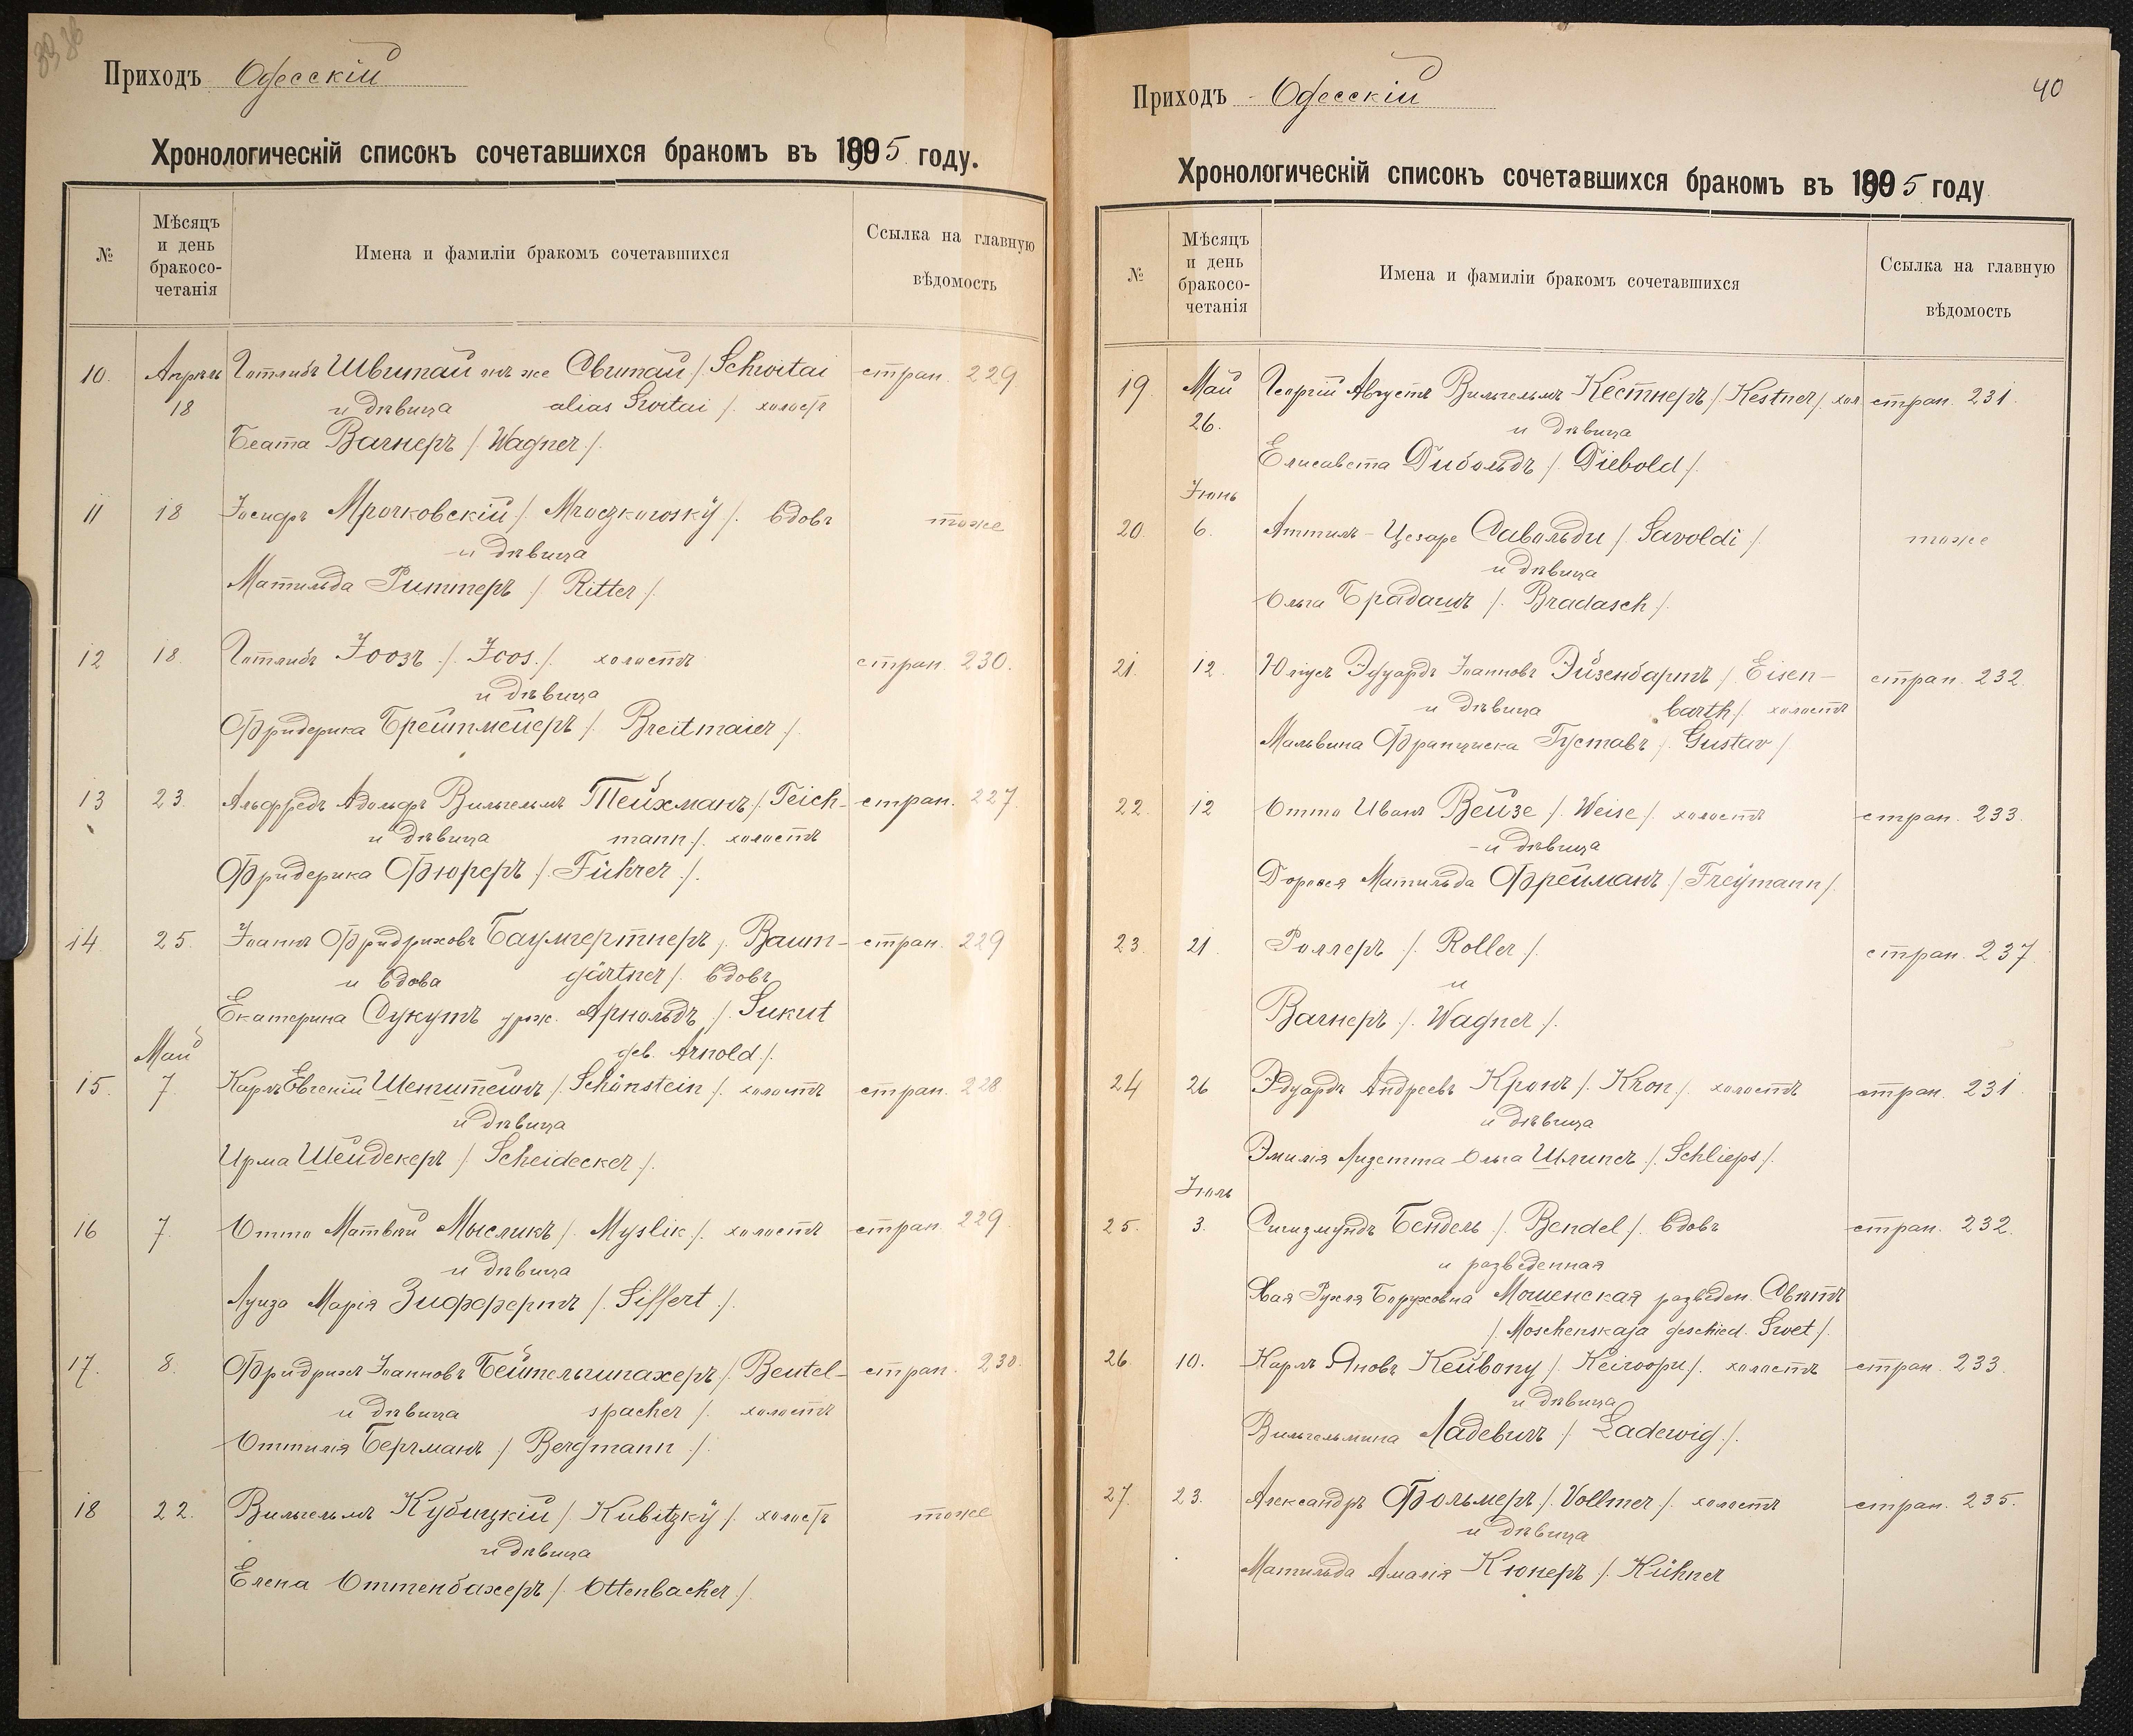 Приходъ Одесскій
Хронологическій списокъ сочетавшихся бракомъ въ 1905 году.
№
Мѣсяцъ и день бракосо-четанія
Имена и фамиліи бракомъ сочетавшихся
Ссылка на главную вѣдомость
10. Апрѣль Готлибъ Швитай онъ же Свитай /. Schwitai стран. 229
18 и дѣвица alias Switai /. холост
Беата Вагнеръ /. Wagner /.
11 18 Іосифъ Мрочковскій /. Mroczkowskÿ /. вдовъ тоже
и дѣвица
Матильда Риттеръ /. Ritter /.
12 18. Готлибъ Іоозъ /. Joos /. холостъ стран. 230.
и дѣвица
Фридерика Брейтмейеръ /. Breitmaier /.
13 23. Альфредъ Адольфъ Вильгельмъ Тейхманъ /. Teich- стран. 227.
и дѣвица mann /. холостъ
Фридерика Фюреръ /. Führer /.
14 25. Іоаннъ Фридриховъ Баумгертнеръ /. Baum- стран. 229
и вдова gärtner /. вдовъ
Екатерина Сукутъ урож. Арнольдъ /. Sukut
Май geb. Arnold /.
15. 7. Карлъ Евгеній Шенштейнъ /. Schönstein /. холостъ стран. 228.
и дѣвица
Ирма Шейдекеръ /. Scheidecker /.
16 7. Отто Матвѣй Мысликъ /. Myslik /. холостъ стран. 229.
и дѣвица
Луиза Марія Зиффертъ /. Siffert /.
17. 8. Фридрихъ Іоанновъ Бейтельшпахеръ /. Beutel- стран. 230.
и дѣвица spacher /. холостъ
Оттилія Бергманъ /. Bergmann /.
18 22. Вильгельмъ Кубицкій /. Kubitzkÿ /. холост тоже
и дѣвица
Елена Оттенбахеръ /. Ottenbacher /.
40
Приходъ Одесскій
Хронологическій списокъ сочетавшихся бракомъ въ 1905 году
№
Мѣсяцъ и день бракосо-четанія
Имена и фамиліи бракомъ сочетавшихся
Ссылка на главную вѣдомость
19. Май Георгій Августъ Вильгельмъ Кестнеръ /. Kestner /. хол стран. 231.
26. и дѣвица
Елисавета Дибольдъ /. Diebold /.
Іюнь
20. 6. Аттилъ-Цезаре Савольди /. Savoldi /. тоже
и дѣвица
Ольга Брадашъ /. Bradasch /.
21. 12. Юліусъ Эдуардъ Іоанновъ Эйзенбартъ /. Eisen- стран. 232.
и дѣвица barth /. холостъ
Мальвина Франциска Густавъ /. Gustav /.
22. 12 Отто Иванъ Вейзе /. Weise /. холостъ стран. 233.
и дѣвица
Доротея Матильда Фрейманъ /. Freÿmann /.
23. 21. Роллеръ /. Roller /. стран. 237.
и
Вагнеръ /. Wagner /.
24 26 Эдуардъ Андреевъ Кронъ /. Kron /. холостъ стран. 231.
и дѣвица
Эмилія Лизетта-Ольга Шлипсъ /. Schlieps /.
Іюль
25. 3. Сигизмундъ Бендель /. Bendel /. вдовъ стран. 232.
и разведенная
Хая Рухля Боруховна Мошенская разведен. Свѣтъ
/. Moschenskaja geschied. Swet /.
26. 10. Карлъ Яновъ Кейвопу /. Keiwopu /. холостъ стран. 233.
и дѣвица
Вильгельмина Ладевигъ /. Ladewig /.
27. 23. Александръ Фольмеръ /. Vollmer /. холостъ стран. 235.
и дѣвица
Матильда Амалія Кюнеръ /. Kühner